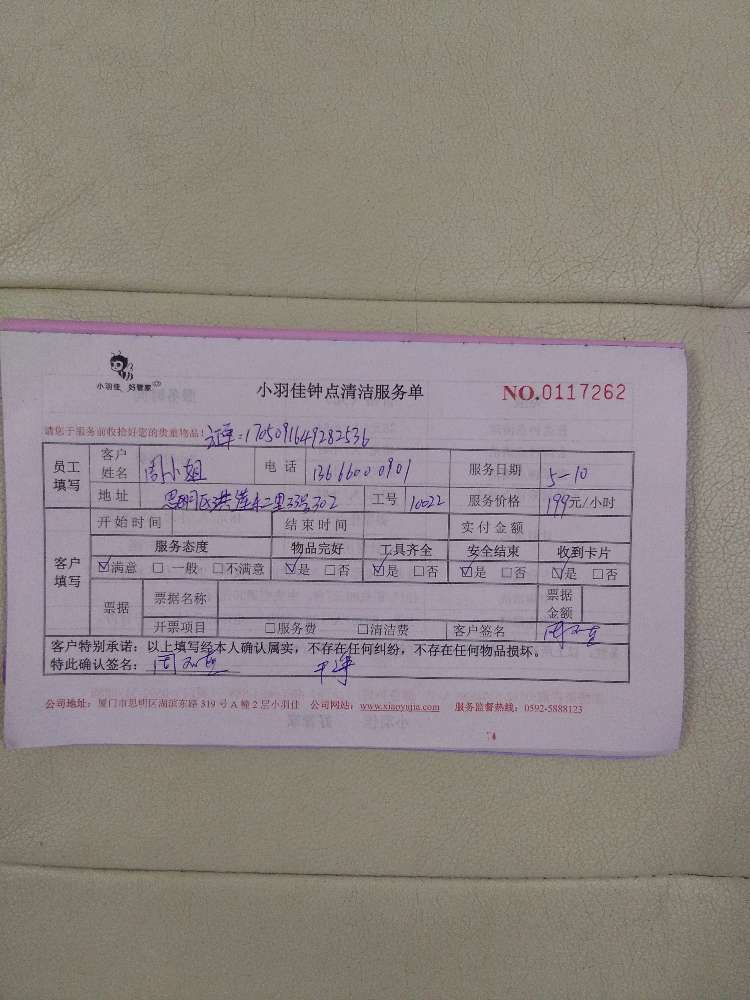 小羽佳 好管家
小羽佳钟点清洁服务单
NO.0117262
请您于服务前收拾好您的贵重物品!
订单:1705091649282536
员工填写 客户姓名 周小姐 电话 13666000901 服务日期 5-10
地址 思明区洪莲东二里33号302 工号 10022 服务价格 199元/小时
客户填写 开始时间 结束时间 实付金额
服务态度 物品完好 工具齐全 安全结束 收到卡片
☑满意 □一般 □不满意 ☑是 □否 ☑是 □否 ☑是 □否 ☑是 □否
票据 票据名称 票据金额
开票项目 □服务费 □清洁费 客户签名
客户特别承诺:以上填写经本人确认属实,不存在任何纠纷,不存在任何物品损坏。
特此确认签名: 干净
公司地址:厦门市思明区湖滨东路 319 号 A 幢 2 层小羽佳 公司网站:www.xiaoyujia.com 服务监督热线:0592-5888123